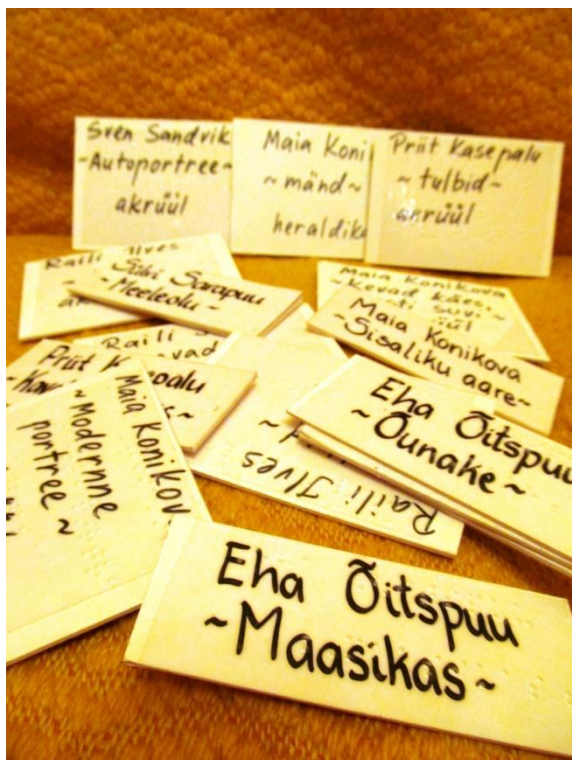 Sven Sandvik
~Autoportree~
akrüül
Maia Koni
~ mänd ~
heraldika
Priit Kasepalu
~ tulbid ~
akrüül
Raili Ilves
Sülvi Sarapuu
~Meeleolu~
Maia Konikova
~Kevad käes,
suvi ~
Maia Konikova
~Sisaliku aare~
Raili
Priit Kasepalu
Maia Konikov
~Moderne
portree ~
Raili Ilves
Eha Õitspuu
~Õunake~
Eha Õitspuu
~Maasikas~